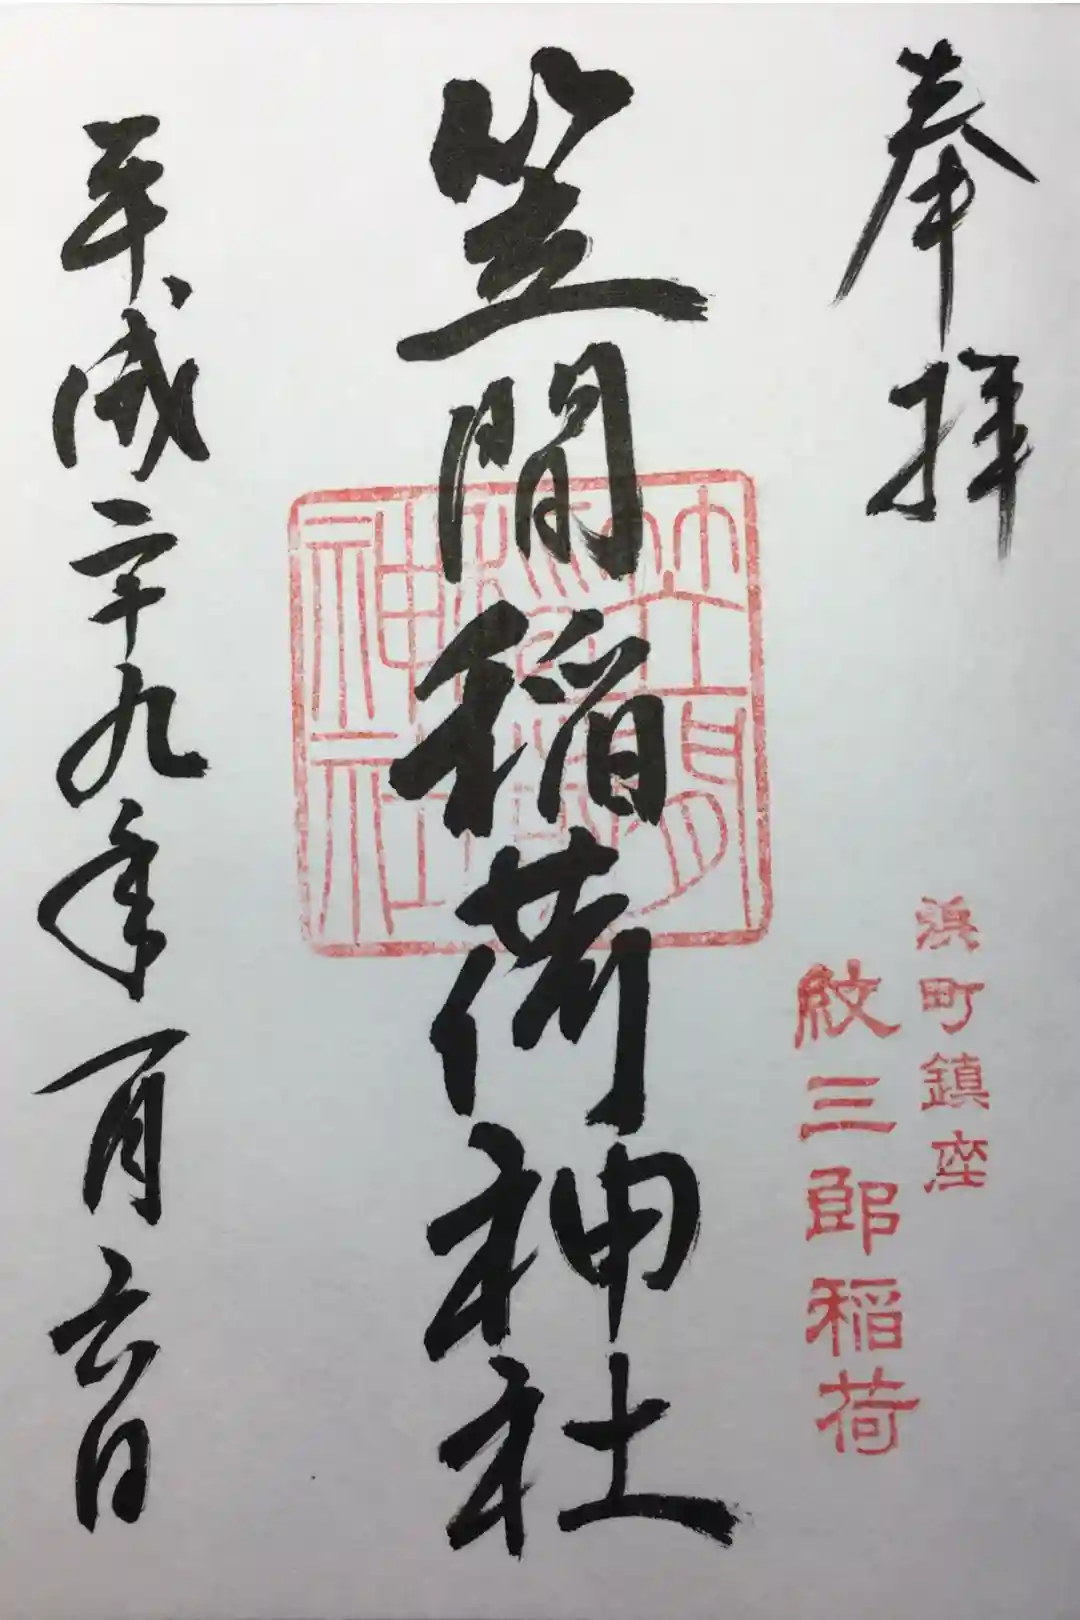 奉拝
浜町鎮座
紋三郎稲荷
笠間稲荷神社
笠間
稲荷
神社
平成二十九年一月六日